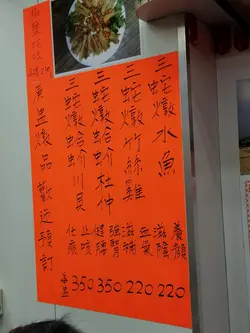 三蛇燉水魚 養顏滋陰 220
三蛇燉竹絲雞 血氣滋補 220
三蛇燉蛤蚧杜仲 強腎健腰 350
三蛇燉蛤蚧川貝 止咳化痰 350
原盅燉品歡迎預訂
椒鹽蛇碌